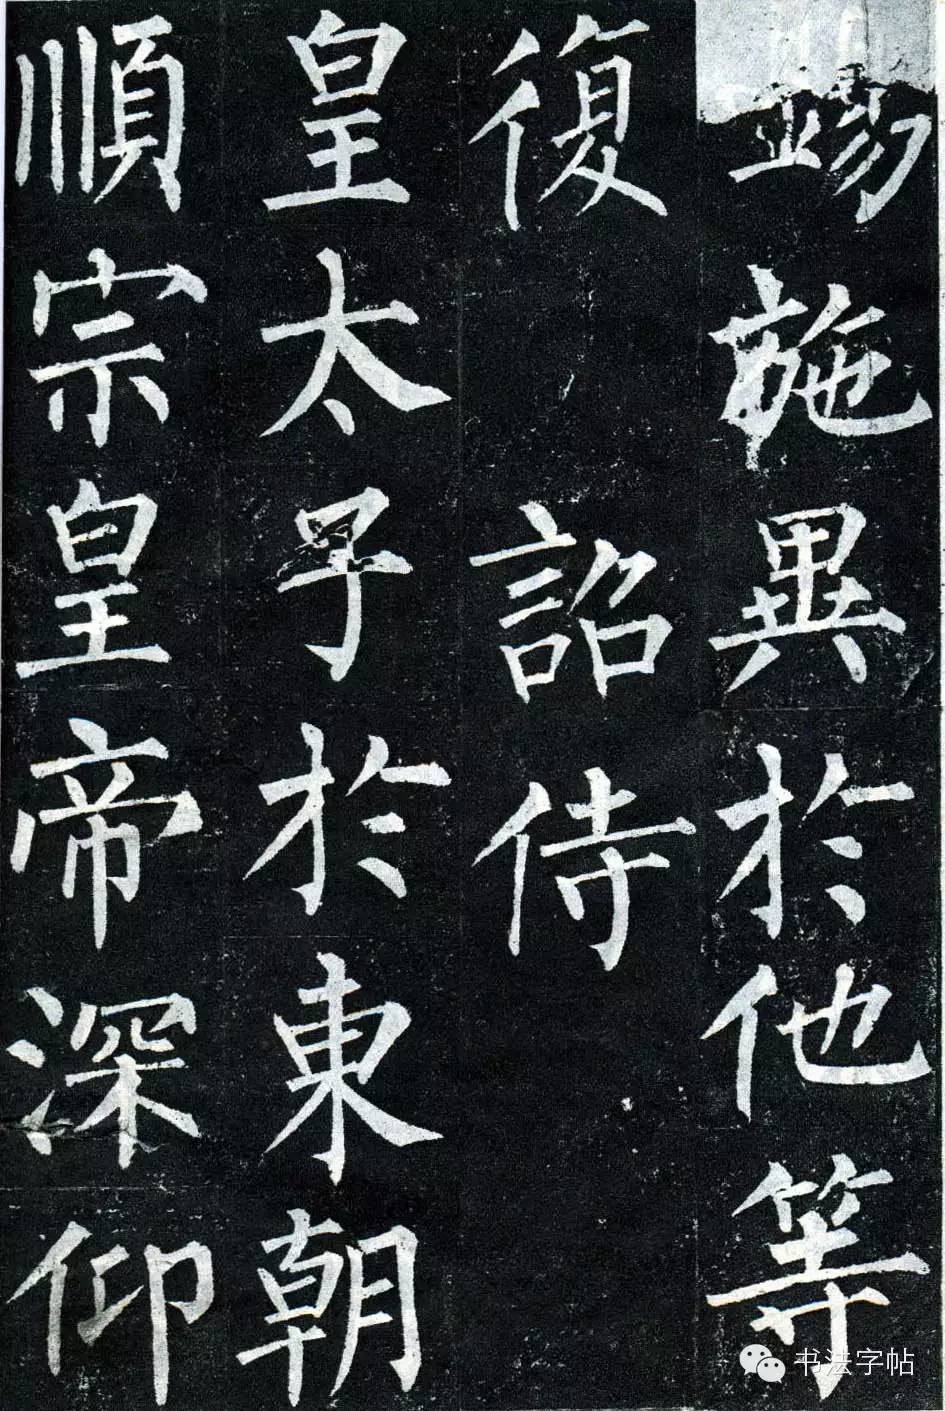 錫施異於他等
復詔侍
皇太子於東朝
順宗皇帝深仰
书法字帖